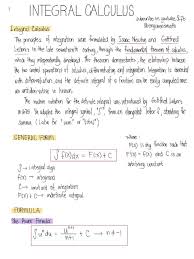 INTEGRAL CALCULUS
Integral Calculus
The principles of integration were formulated by Isaac Newton and Gottfried
Leibniz in the late seventeenth century, through the Fundamental Theorem of calculus,
which they independently developed. The theorem demonstrates the relationship between
the two central operations of calculus, differentiation and integration. Integration is connected
with differentiation, and the definite integral of a function can be easily computed once
an antiderivative is known.
The modern notation for the indefinite integral was introduced by Gottfried Leibniz
in 1675. He adapted the integral symbol, ∫, from an elongated letter S, standing for
summa (Latin for "sum" or "total").
GENERAL FORM:
∫ f(x)dx = F(x) + C
where
F(x) is any function such that
∫ → integral sign
F(x) → integrand
C → constant of integration
FORMULA:
The Power Formula
∫ uⁿ du = uⁿ⁺¹/n+1 + C → n ≠ -1